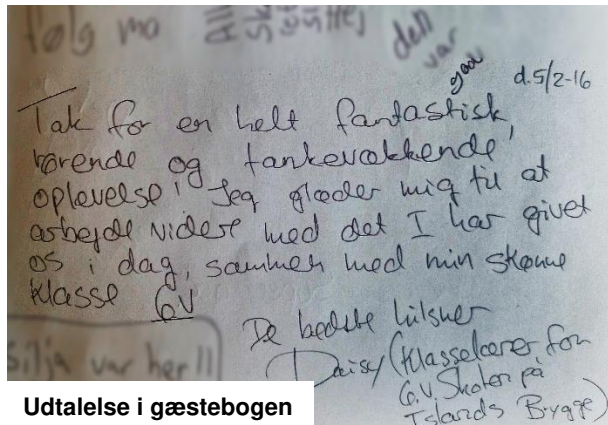 følg mo
den
var
god
d. 5/2-16
Tak for en helt fantastisk,
rørende og tankevækkende
oplevelse! Jeg glæder mig til at
arbejde videre med det I har givet
os i dag, sammen med min skønne
klasse 6V
De bedste hilsner
Daisy (klasselærer for
6.V, Skolen på
Islands Brygge)
Silja var her!!
Udtalelse i gæstebogen